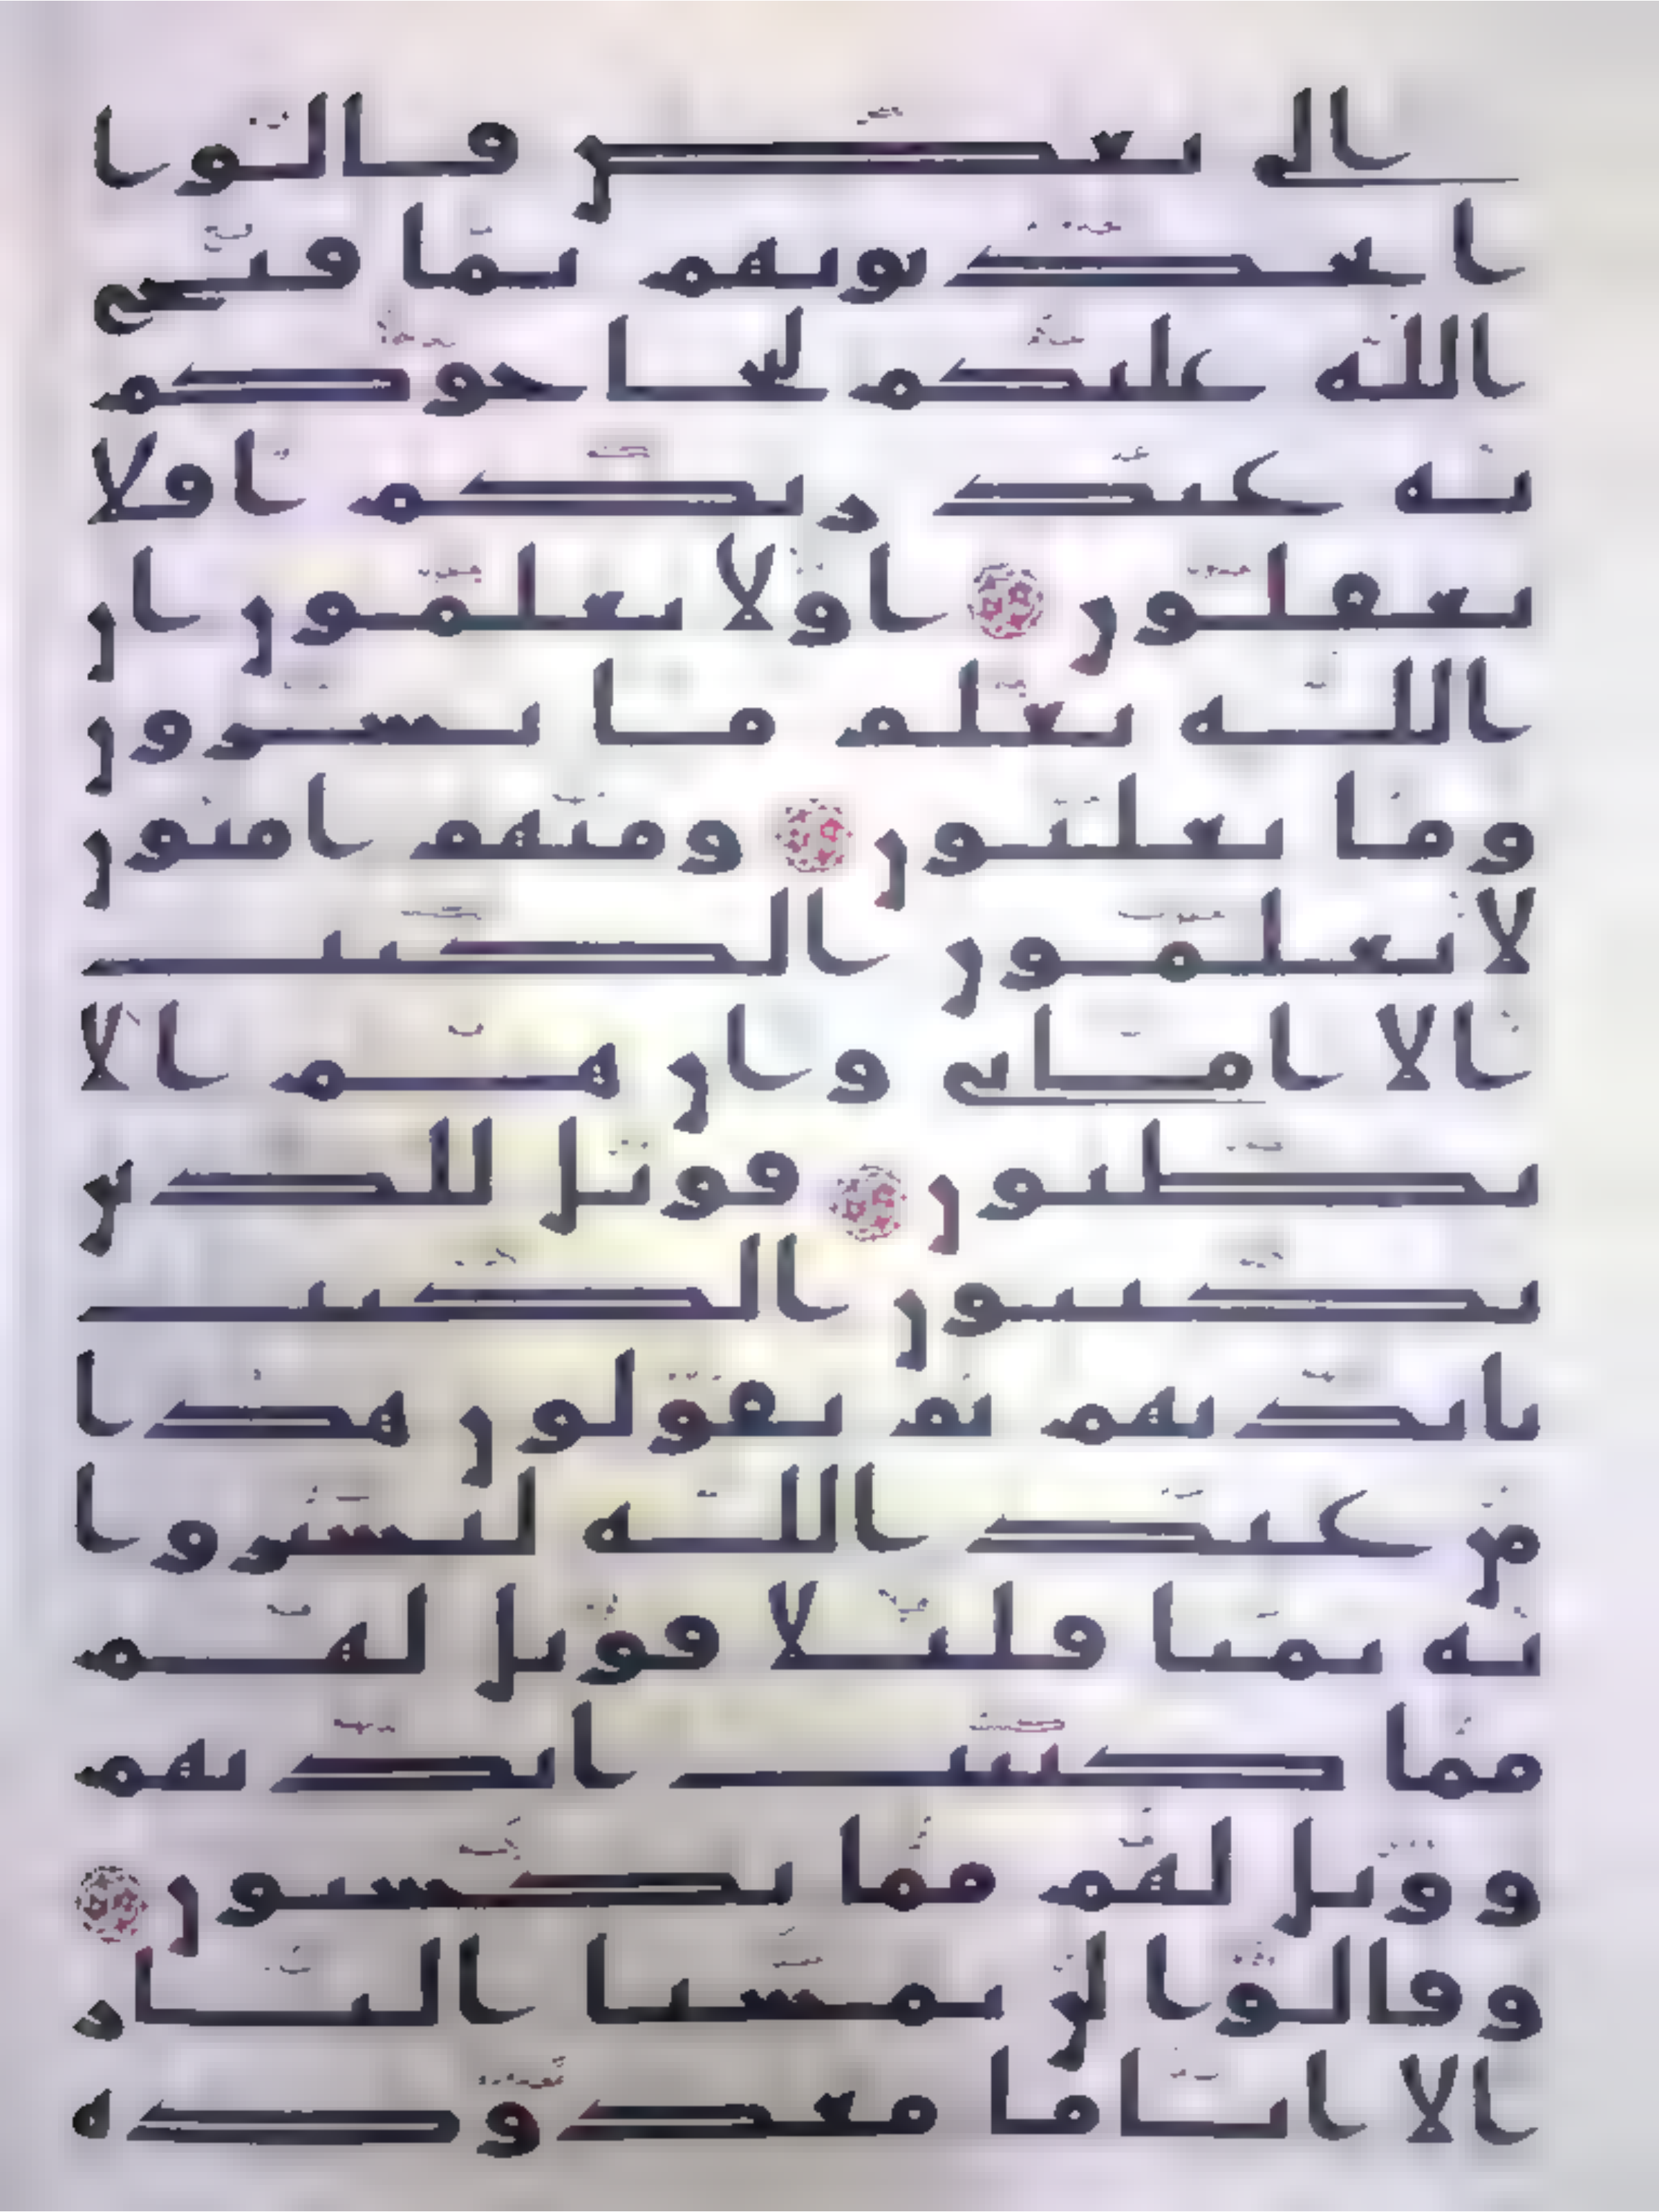 الى بعض قالوا
اتحدثونهم بما فتح
الله عليكم ليحاجوكم
به عند ربكم افلا
تعقلون اولا يعلمون ان
الله يعلم ما يسرون
وما يعلنون ومنهم اميون
لا يعلمون الكتب
الا امانى وان هم الا
يظنون فويل للذين
يكتبون الكتب
بايديهم ثم يقولون هذا
من عند الله ليشتروا
به ثمنا قليلا فويل لهم
مما كتبت ايديهم
وويل لهم مما يكسبون
وقالوا لن تمسنا النار
الا اياما معدوده